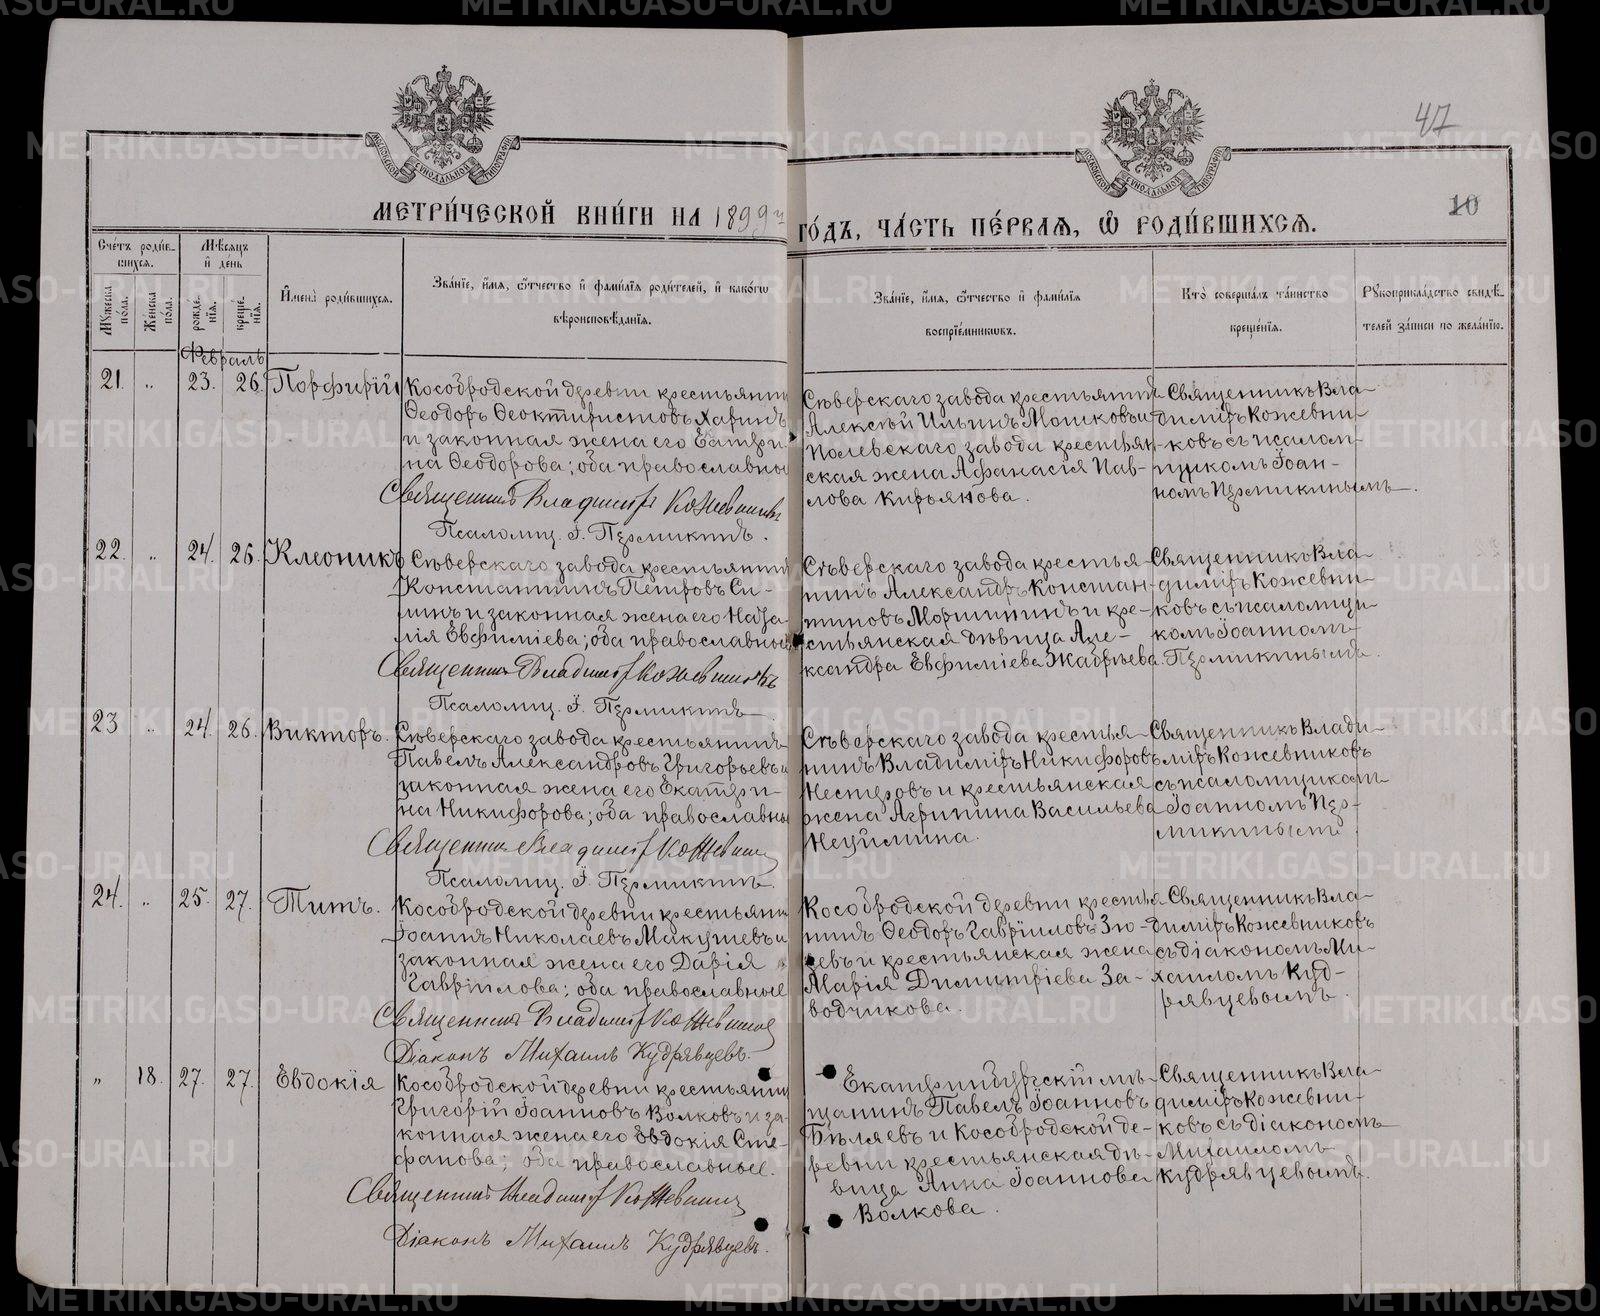 47
10
МОСКОВСКОЙ СѴНОДАЛЬНОЙ ТИПОГРАФІИ
МОСКОВСКОЙ СѴНОДАЛЬНОЙ ТИПОГРАФІИ
МЕТРИ́ЧЕСКОЙ КНИ́ГИ НА 1899й ГО́ДЪ, ЧА́СТЬ ПЕ́РВАЯ, Ѿ РОДИ́ВШИХСЯ.
Сче́тъ роди́в-
шихся.
Мужеска по́ла.
Же́нска по́ла.
Мѣ́сяцъ
и҆ де́нь
рожде́-
нїя.
креще́-
нїя.
И҆мена̀ роди́вшихся.
Зва́нїе, и҆́мя, ѻ҆́тчество и҆ фами́лїя роди́телей, и҆ како́гѡ
вѣроисповѣ́данїя.
Зва́нїе, и҆́мя, ѻ҆́тчество и҆ фами́лїя
воспрїе́мникѡвъ.
Кто̀ соверша́лъ та́инство
креще́нїя.
Рукоприкла́дство свидѣ́-
телей за́писи по жела́нїю.
Февраль
21. „ 23. 26. Порфирій
Кособродской деревни крестьянин
Ѳеодоръ Ѳеоктиристовъ Харинъ
и законная жена его Екатери-
на Ѳеодорова; оба православны
Священникъ Владиміръ Кожевниковъ
Псаломщ. І. Пермикинъ.
Сѣверскаго завода крестьянинъ
Алексѣй Ильинъ Мошковъ и
Полевскаго завода крестьян-
ская жена Аѳанасія Пав-
лова Кирьянова.
Священникъ Вла-
диміръ Кожевни-
ковъ съ псалом-
щикомъ Іоан-
номъ Пермикинымъ.
22. „ 24. 26. Клеоникъ
Сѣверскаго завода крестьянинъ
Константинъ Петровъ Си-
линъ и законная жена его Ната-
лія Евфиміева; оба православны
Священникъ Владиміръ Кожевниковъ
Псаломщ. І. Пермикинъ.
Сѣверскаго завода крестья-
нинъ Александръ Констан-
тиновъ Моршининъ и кре-
стьянская дѣвица Але-
ксандра Евфиміева Жабрѣева.
Священникъ Вла-
диміръ Кожевни-
ковъ съ псаломщи-
комъ Іоанномъ
Пермикинымъ.
23 „ 24. 26. Викторъ.
Сѣверскаго завода крестьянинъ
Павелъ Александровъ Григорьевъ и
законная жена его Екатери-
на Никифорова; оба православны
Священникъ Владиміръ Кожевник
Псаломщ. І. Пермикинъ.
Сѣверскаго завода крестья-
нинъ Владиміръ Никифоровъ
Нестеровъ и крестьянская
жена Агрипина Васильева
Неуймина.
Священникъ Влади-
міръ Кожевниковъ
съ псаломщикомъ
Іоанномъ Пер-
микинымъ.
24. „ 25. 27. Титъ.
Кособродской деревни крестьянин
Іоаннъ Николаевъ Макушевъ и
законная жена его Дарія
Гавріилова; оба православные
Священникъ Владиміръ Кожевников
Діаконъ Михаилъ Кудрявцевъ.
Кособродской деревни крестья
нинъ Ѳеодоръ Гавріиловъ Зю-
зевъ и крестьянская жена
Марія Димитріева За-
водчикова.
Священникъ Вла-
диміръ Кожевниковъ
съ діакономъ Ми-
хаиломъ Куд-
рявцевымъ.
„ 18. 27. 27. Евдокія
Кособродской деревни крестьянин
Григорій Іоанновъ Волковъ и за-
конная жена его Евдокія Сте-
фанова; оба православные.
Священникъ Владиміръ Кожевник
Діаконъ Михаилъ Кудрявцевъ.
Екатеринбургскій мѣ-
щанинъ Павелъ Іоанновъ
Бѣляевъ и Кособродской де-
ревни крестьянская дѣ-
вица Анна Іоаннова
Волкова.
Священникъ Вла-
диміръ Кожевни-
ковъ съ діакономъ
Михаиломъ
Кудрявцевымъ.
METRIKI.GASO-URAL.RU